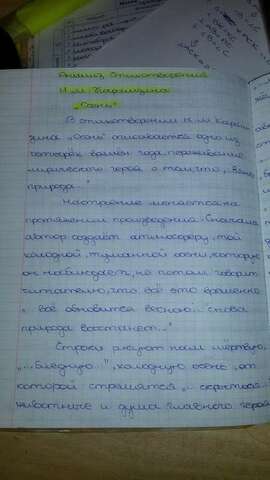 Анализ Стихотворения
Н.М. Карамзина
„Осень"
В стихотворении Н.М Карам-
зина „Осень" описывается одно из
четырёх времён года, переживание
лирического героя о том, что
природа
Настроение меняется на
протяжении произведения. Сначала
автор создаёт атмосферу, той
холодной, туманной осени, которую
он наблюдает, но потом говорит
читателю, что всё это временно
„ всё обновится весною. снова
природа восстанет..."
Строки рисуют нам мёртвую,
„...бледную...", холодную осень, от
которой стремятся „ скрыться
животные и душа главного героя